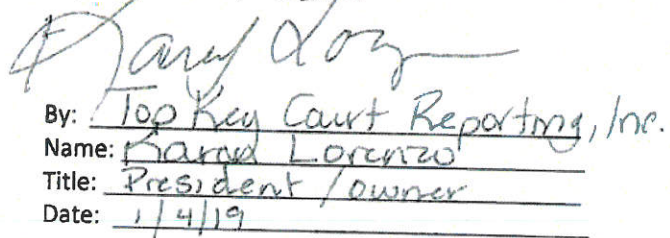 By: Top Key Court Reporting, Inc.
Name: Karen Lorenzo
Title: President / owner
Date: 1/4/19